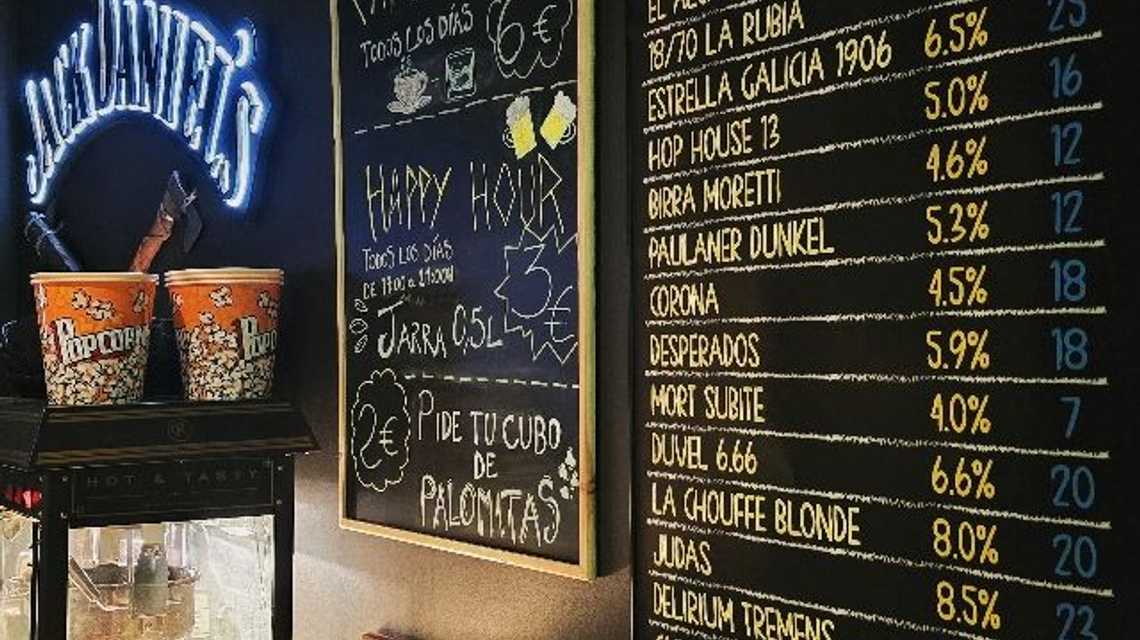 JACK DANIEL'S
POPCORN
POPCORN
HOT & TASTY
TODOS LOS DÍAS
6€
HAPPY HOUR
TODOS LOS DÍAS
DE 17:00 A 21:00H
3€
JARRA 0,5L
2€
PIDE TU CUBO
DE
PALOMITAS
EL
18/70 LA RUBIA
ESTRELLA GALICIA 1906 6.5% 25
HOP HOUSE 13 5.0% 16
BIRRA MORETTI 4.6% 12
PAULANER DUNKEL 5.3% 12
CORONA 4.5% 18
DESPERADOS 5.9% 18
MORT SUBITE 4.0% 7
DUVEL 6.66 6.6% 20
LA CHOUFFE BLONDE 8.0% 20
JUDAS 8.5% 23
DELIRIUM TREMENS